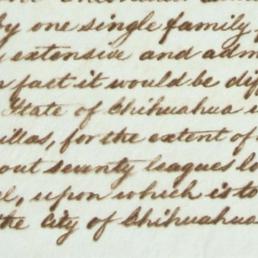 by one single family
extensive and adm
fact it would be diff
State of Chihuahua
illas, for the extent of
out seventy leagues lo
l, upon which is to
the City of Chihuahua